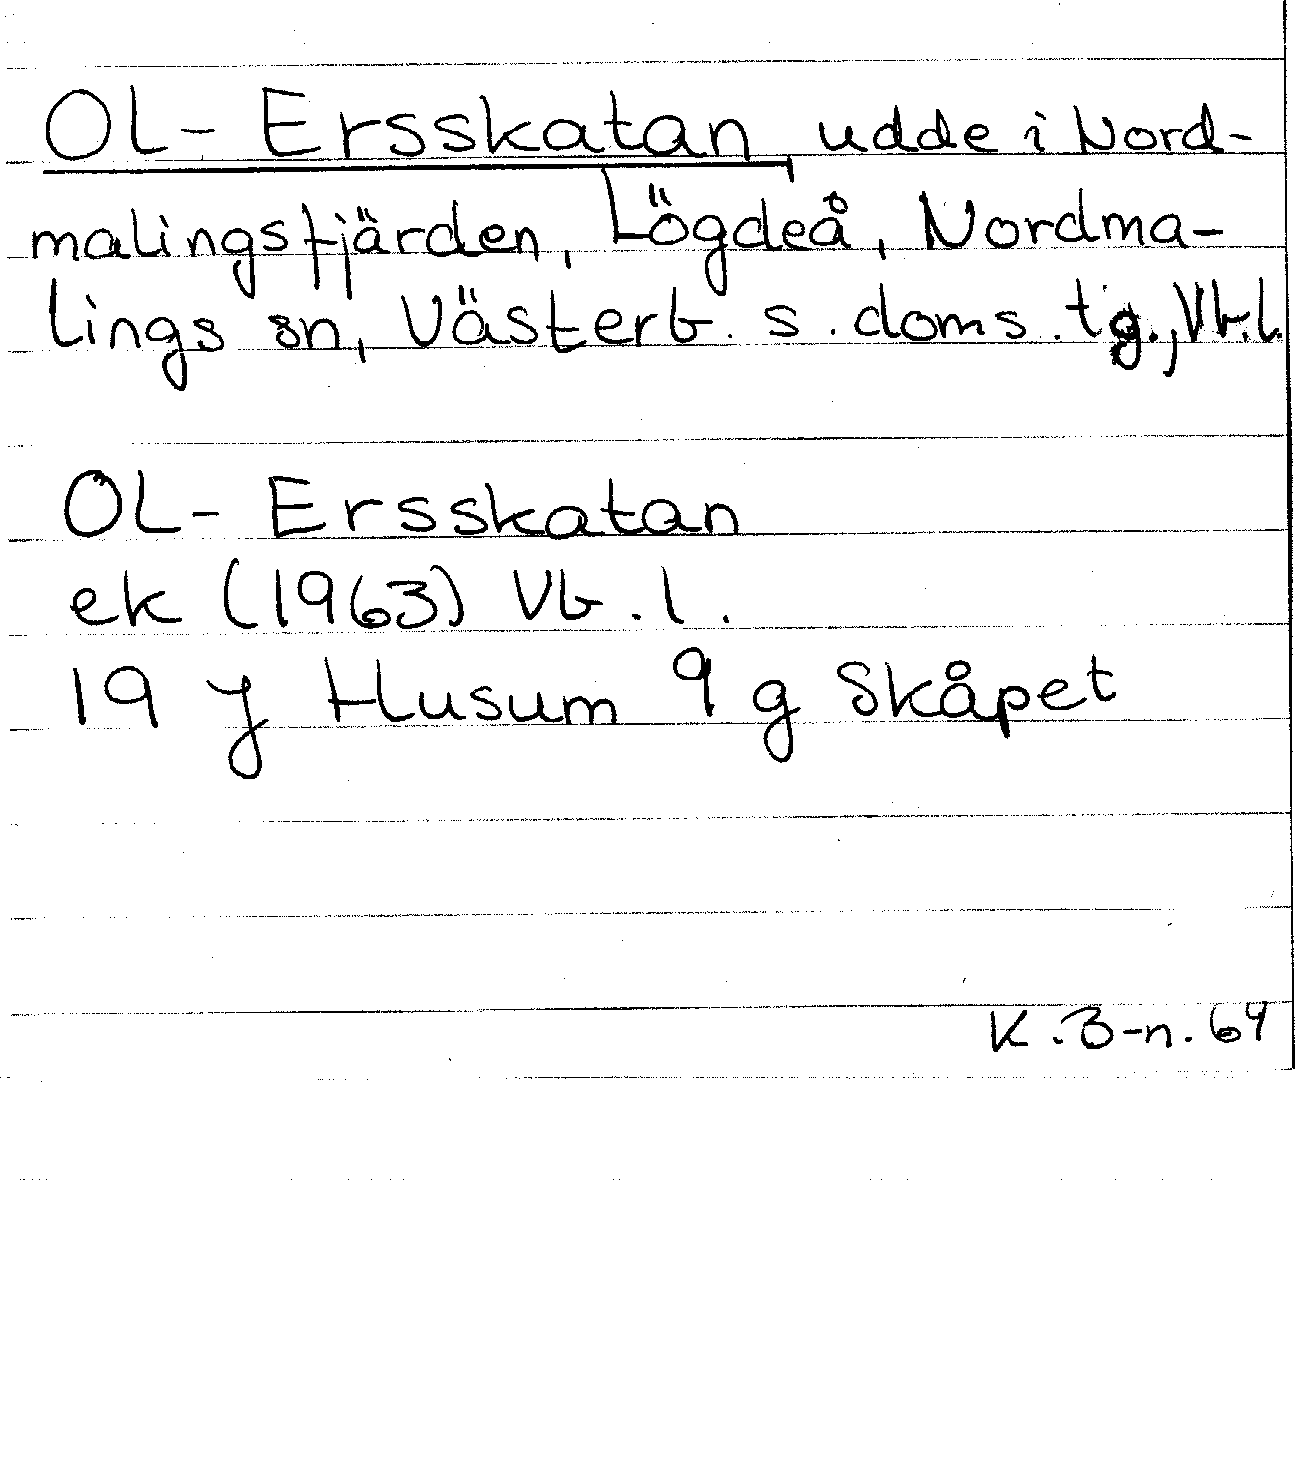 OL-Ersskatan, udde i Nord-
malingsfjärden, Lögdeå, Nordma-
lings sn, Västerb. s. doms. tg., Vb.l.
OL-Ersskatan
ek (1963) Vb.l.
19 J Husum 9 g Skåpet
K.B-n. 64